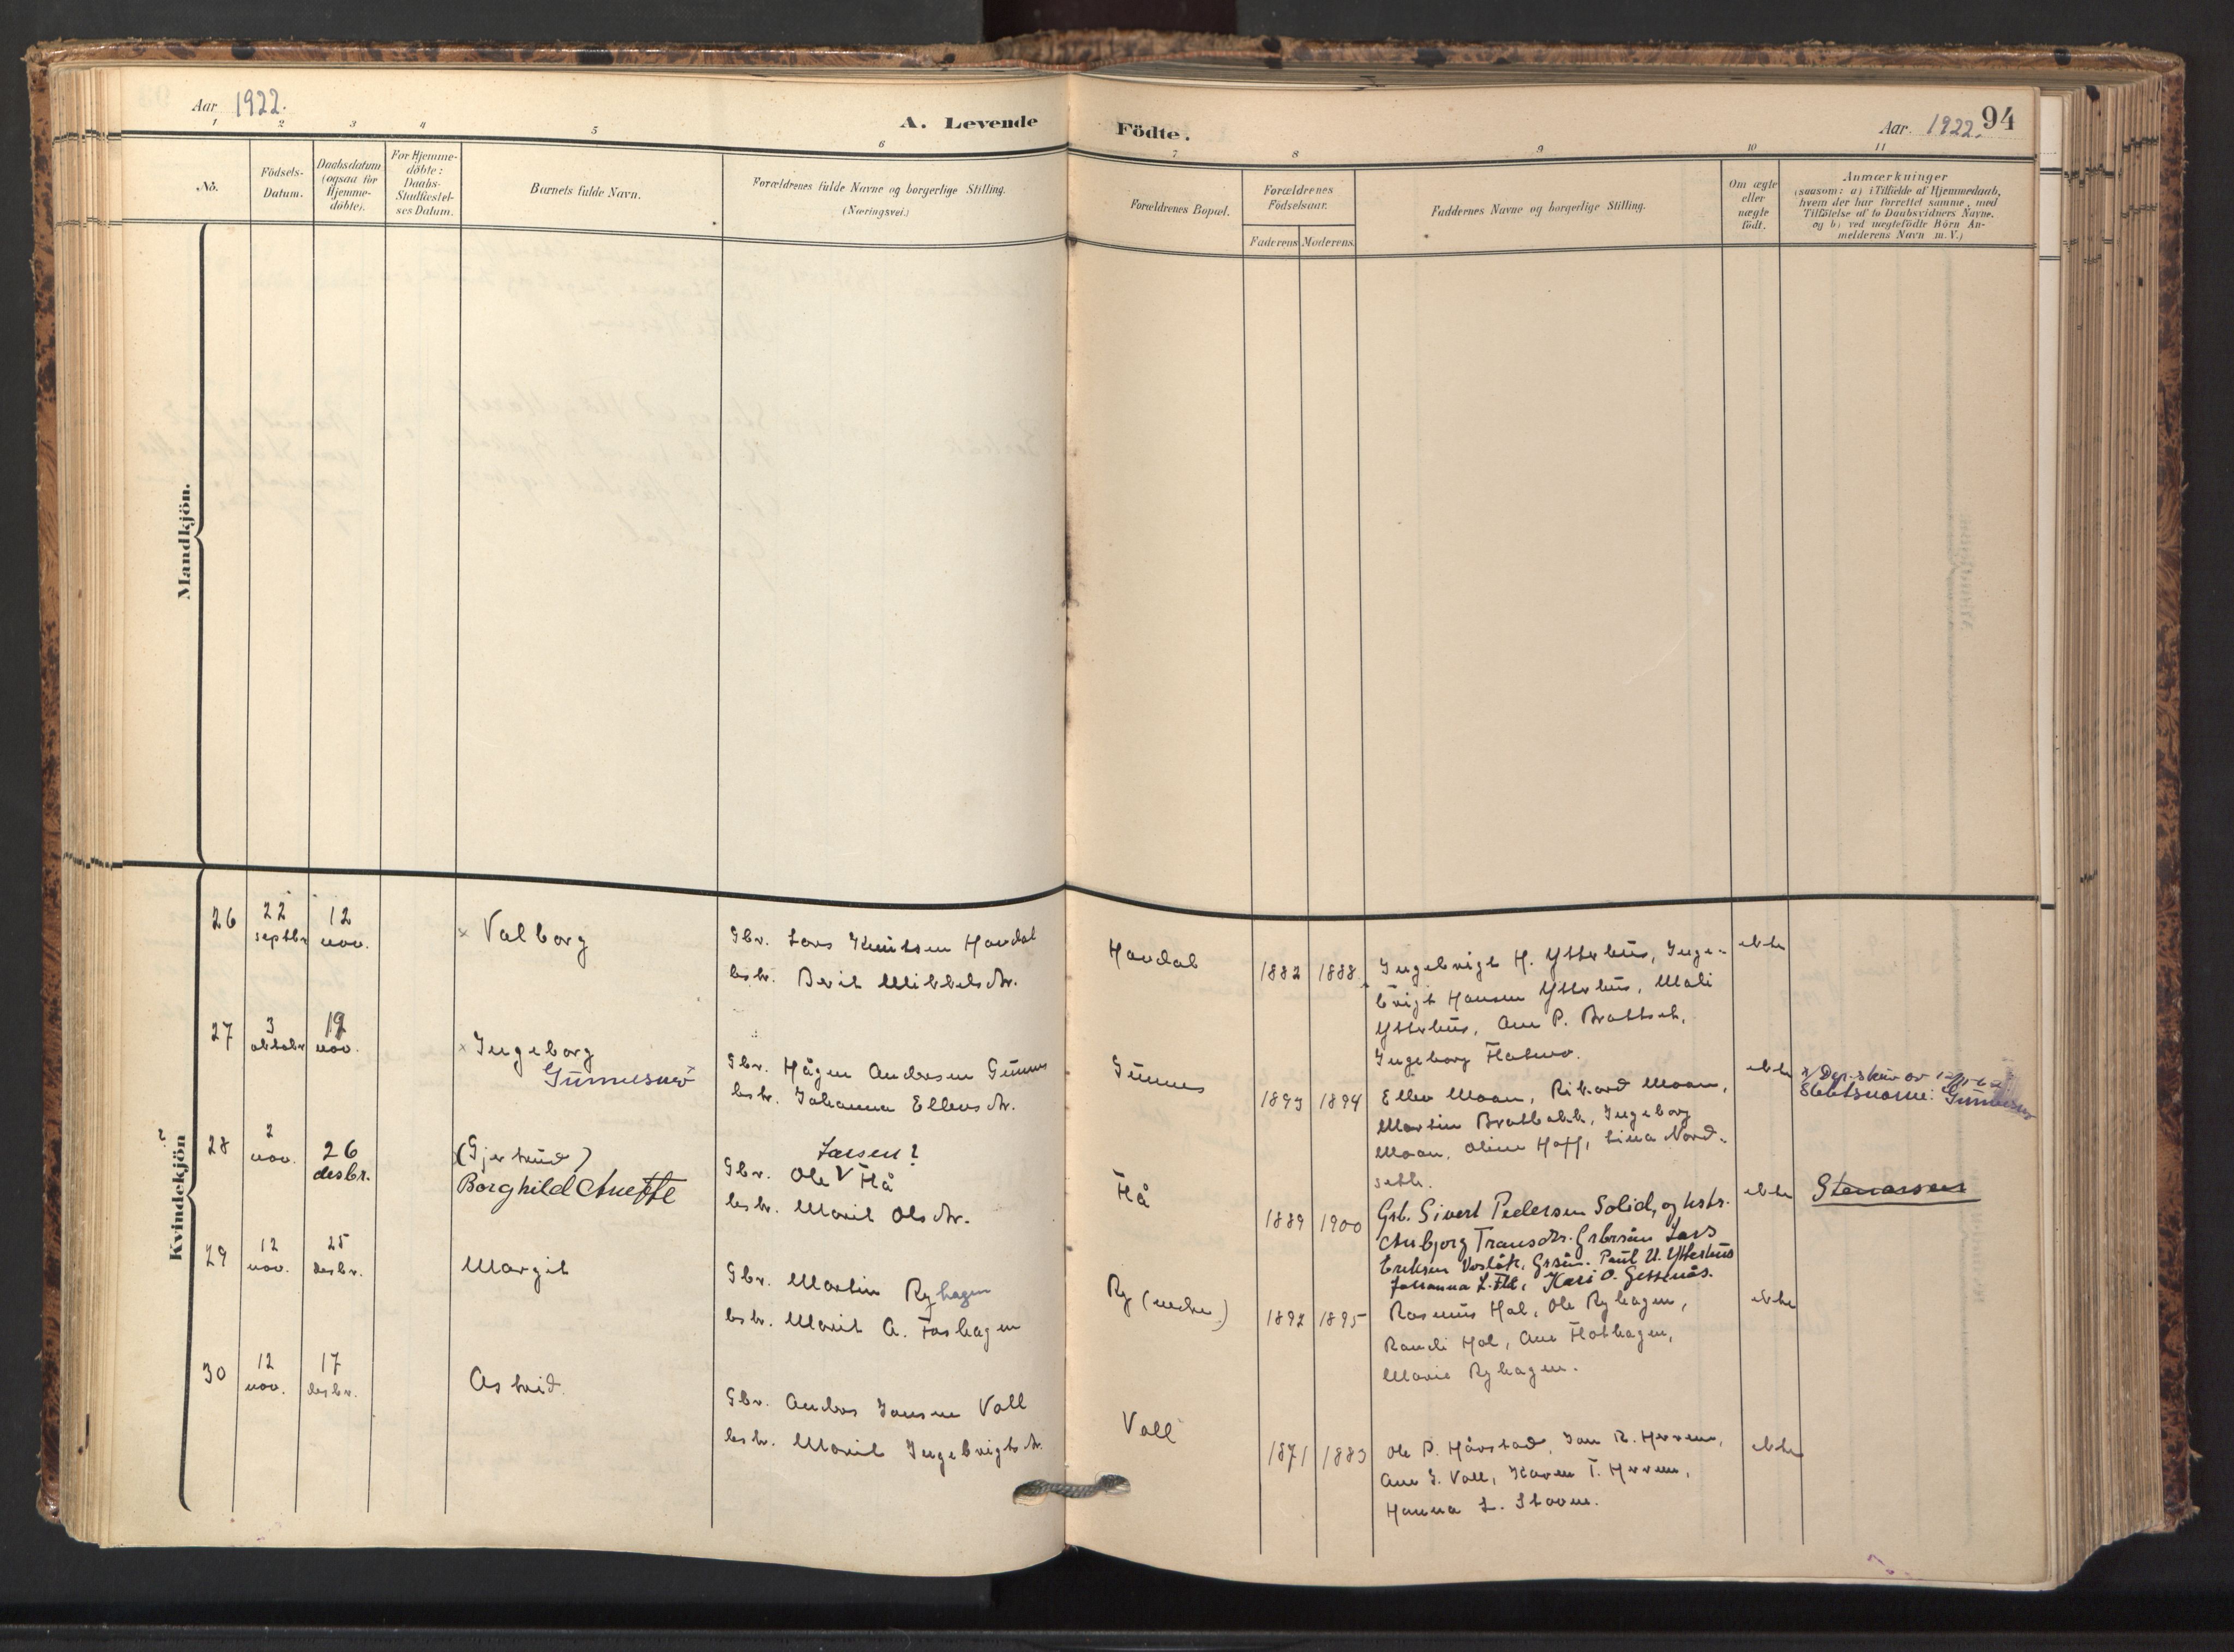 Aar 1922.
A. Levende
Födte.
Aar. 1922.
94
1 2 3 4 5 6 7 8 9 10 11
No.
Födsels-
Datum.
Daabsdatum
(ogsaa for
Hjemme-
döbte).
For Hjemme-
döbte:
Daabs-
Stadfæstel-
ses Datum.
Barnets fulde Navn.
Forældrenes fulde Navne og borgerlige Stilling.
(Næringsvei.)
Forældrenes Bopæl.
Forældrenes
Födselsaar.
Faderens Moderens
Faddernes Navne og borgerlige Stilling.
Om ægte
eller
uægte
födt.
Anmærkninger
(saasom: a) i Tilfælde af Hjemmedaab,
hvem der har forrettet samme, med
Tilföielse af to Daabsvidners Navne,
og b) ved uægtefödte Börn An-
melderens Navn m. V.)
Mandkjön.
Kvindekjön
26
22
septbr
12
nov.
× Valborg
Gbr. Lars Knutsen Havdal
hstr. Berit Mikkelsdtr.
Havdal
1882 1888
Ingebrigt H. Ytterhus, Inge-
brigt Hansen Ytterhus, Mali
Ytterhus, Ane P. Brattset,
Ingeborg Flatmo.
ekte
27
3
oktober
19
nov.
× Ingeborg
Gunnesmo
Gbr. Hågen Andersen Gunnes
hstr. Johanna Ellensdtr.
Gunnes
1893 1894
Ellen Moan, Rikard Moan,
Martin Brattbakk, Ingeborg
Moan, Oline Hoff, Lina Nord-
seth.
ekte
Slektsnavne: Gunnesmo
?
28
2
nov.
26
desbr.
(Gjertrud)
Borghild Anette
Larsen?
Gbr. Ole V Flå
hstr. Marit Olsdtr.
Flå
1889 1900
Grb. Sivert Pedersen Solid, og hstr.
Anbjorg Transdtr. Grbrsön Lars
Eriksen Voslök, Grsön. Paul U. Ytterhus
Johanna L. Flå, Kari O. Gettenås.
ekte
Stenarsen
29
12
nov.
25
desbr.
Margit
Gbr. Martin Ryhagen
hstr. Marit A. Foshagen
Ry (nedre)
1892 1895
Rasmus Hol, Ole Ryhagen,
Randi Hol, Ane Flathagen,
Marie Ryhagen.
ekte
30
12
nov.
17
desbr.
Astrid.
Gbr. Anders Jonsen Voll
hstr. Marit Ingebrigtsdtr.
Voll
1871 1883
Ole P. Hårstad, Jon R. Herrem,
Ane J. Voll, Karen T. Herrem,
Hanna L. Stavne.
ekte